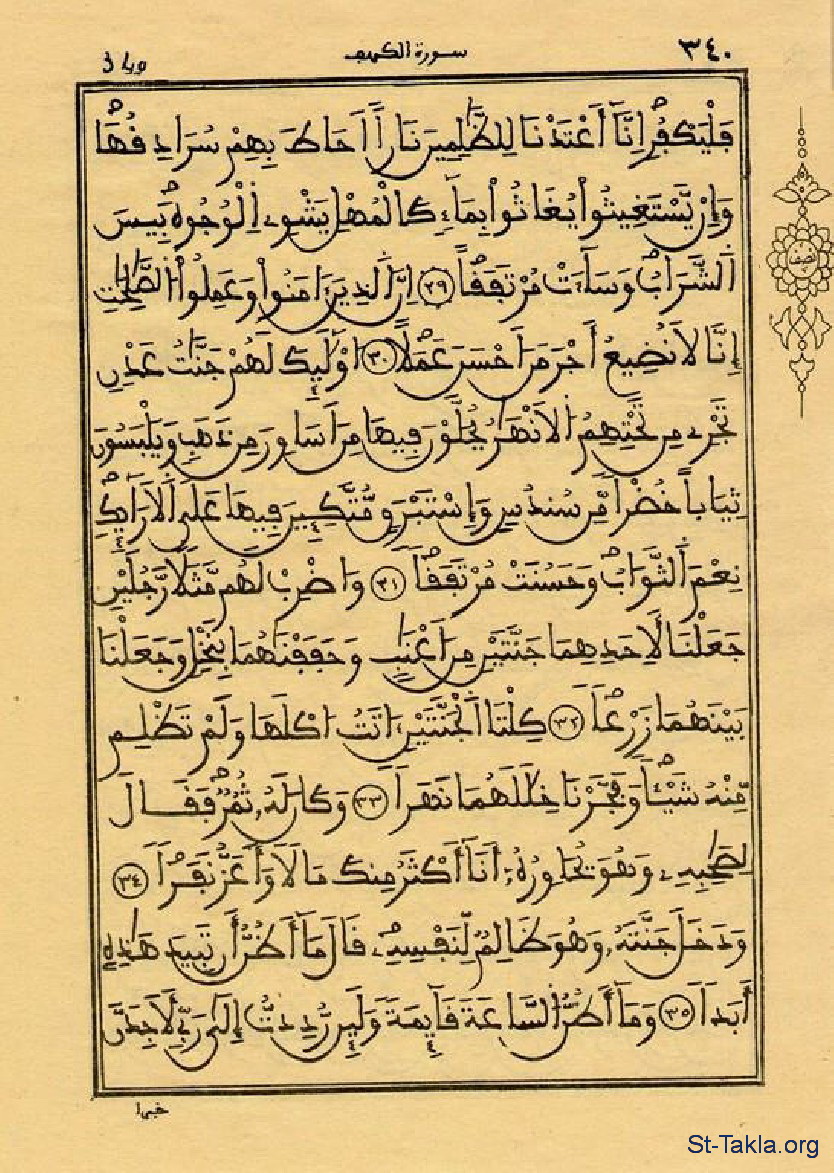 ٣٤٠
سورة الكهف
فَلْيَكْفُرِ انَّآ أَعْتَدْنَا لِلظَّٰلِمِينَ نَاراً اَحَاطَ بِهِمْ سُرَادِقُهَا
وَإِنْ يَّسْتَغِيثُواْ يُغَاثُواْ بِمَآءٍ كَالْمُهْلِ يَشْوِے اِلْوُجُوهَ بِيسَ
اَلشَّرَابُ وَسَآءَتْ مُرْتَفَقًا ٢٩ اِنَّ اَلذِينَ ءَامَنُواْ وَعَمِلُواْ الصَّٰلِحَٰتِ
إِنَّا لَا نُضِيعُ أَجْرَ مَنَ اَحْسَنَ عَمَلًا ٣٠ اوْلَٰٓئِكَ لَهُمْ جَنَّٰتُ عَدْنٍ
تَجْرِے مِن تَحْتِهِمُ الَانْهَٰرُ يُحَلَّوْنَ فِيهَا مِنَ اَسَاوِرَ مِن ذَهَبٍ وَيَلْبَسُونَ
ثِيَاباً خُضْراً مِّن سُندُسٍ وَإِسْتَبْرَقٍ مُّتَّكِـِٕينَ فِيهَا عَلَى اَلَارَآئِكِ
نِعْمَ اَلثَّوَابُ وَحَسُنَتْ مُرْتَفَقًا ٣١ وَاضْرِبْ لَهُم مَّثَلًا رَّجُلَيْنِ
جَعَلْنَا لِأَحَدِهِمَا جَنَّتَيْنِ مِنَ اَعْنَٰبٍ وَحَفَفْنَٰهُمَا بِنَخْلٍ وَجَعَلْنَا
بَيْنَهُمَا زَرْعًا ٣٢ كِلْتَا اَلْجَنَّتَيْنِ ءَاتَتُ اكْلَهَا وَلَمْ تَظْلِم
مِّنْهُ شَيْـًٔا وَفَجَّرْنَا خِلَٰلَهُمَا نَهَراً ٣٣ وَكَانَ لَهُۥ ثُمُرٌ فَقَالَ
لِصَٰحِبِهِۦ وَهُوَ يُحَاوِرُهُۥٓ أَنَآ أَكْثَرُ مِنكَ مَالًا وَأَعَزُّ نَفَراً ٣٤
وَدَخَلَ جَنَّتَهُۥ وَهُوَ ظَالِمٌ لِّنَفْسِهِۦ قَالَ مَآ أَظُنُّ أَن تَبِيدَ هَٰذِهِۦٓ
أَبَداً ٣٥ وَمَآ أَظُنُّ اُلسَّاعَةَ قَآئِمَةً وَلَئِن رُّدِدتُّ إِلَىٰ رَبِّے لَأَجِدَنَّ
نصف
خيرا
St-Takla.org